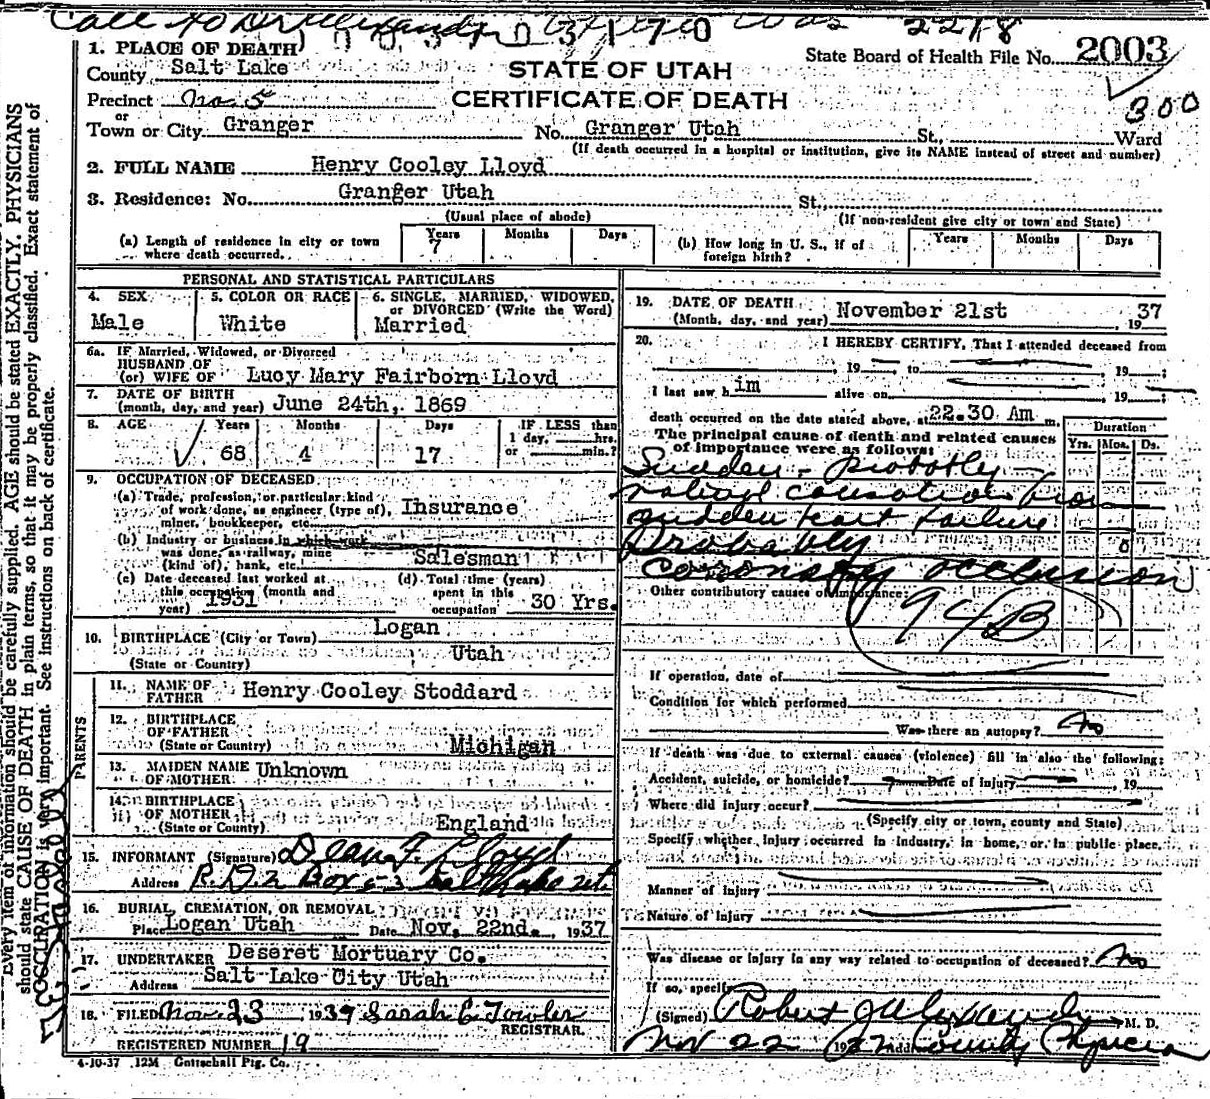 Call to Dr. Alexander 2218
1. PLACE OF DEATH
State Board of Health File No. 2003
County Salt Lake
STATE OF UTAH
Precinct No. 5
CERTIFICATE OF DEATH
300
or
Town or City Granger No. Granger Utah St., Ward
(If death occurred in a hospital or institution, give its NAME instead of street and number)
2. FULL NAME Henry Cooley Lloyd
3. Residence: No. Granger Utah St.,
(Usual place of abode) (If non-resident give city or town and State)
(a) Length of residence in city or town where death occurred. Years 7 Months Days
(b) How long in U. S., if of foreign birth? Years Months Days
PERSONAL AND STATISTICAL PARTICULARS
4. SEX Male
5. COLOR OR RACE White
6. SINGLE, MARRIED, WIDOWED, or DIVORCED (Write the Word) Married
6a. IF Married, Widowed, or Divorced
HUSBAND OF
(or) WIFE OF Lucy Mary Fairborn Lloyd
7. DATE OF BIRTH
(month, day, and year) June 24th, 1869
8. AGE Years 68 Months 4 Days 17 IF LESS than 1 day, hrs. or min.?
9. OCCUPATION OF DECEASED
(a) Trade, profession, or particular kind
of work done, as engineer (type of),
miner, bookkeeper, etc. Insurance
(b) Industry or business in which work
was done, as railway, mine
(kind of), bank, etc. Salesman
(c) Date deceased last worked at
this occupation (month and
year) 1931
(d) Total time (years)
spent in this
occupation 30 Yrs.
10. BIRTHPLACE (City or Town) Logan
(State or Country) Utah
PARENTS
11. NAME OF
FATHER Henry Cooley Stoddard
12. BIRTHPLACE
OF FATHER
(State or Country) Michigan
13. MAIDEN NAME
OF MOTHER Unknown
14. BIRTHPLACE
OF MOTHER
(State or County) England
15. INFORMANT (Signature) Dean F. Lloyd
Address R.D 2 Box 53 Salt Lake
16. BURIAL, CREMATION, OR REMOVAL
Place Logan Utah Date Nov. 22nd., 1937
17. UNDERTAKER Deseret Mortuary Co.
Address Salt Lake City Utah
18. FILED Nov 23 1937 Sarah E. Fowler
REGISTRAR.
REGISTERED NUMBER 19
4-10-37 12M Gottschall Ptg. Co.
19. DATE OF DEATH
(Month, day, and year) November 21st 1937
20. I HEREBY CERTIFY, That I attended deceased from
, 19 to , 19 ;
I last saw him alive on , 19 ;
death occurred on the date stated above, at 22.30 Am m.
The principal cause of death and related causes
of importance were as follows:
Duration
Yrs. Mos. Ds.
Sudden - probably
natural causation from
sudden heart failure
Probably
coronary occlusion
Other contributory causes of importance:
94B
If operation, date of
Condition for which performed
Was there an autopsy? No
If death was due to external causes (violence) fill in also the following:
Accident, suicide, or homicide? Date of injury , 19
Where did injury occur?
(Specify city or town, county and State)
Specify whether injury occurred in industry, in home, or in public place.
Manner of injury
Nature of injury
Was disease or injury in any way related to occupation of deceased? No
If so, specify
(Signed) Robert J Alexander M. D.
Nov 22 1937 Addr. County Physician
Every item of information should be carefully supplied. AGE should be stated EXACTLY. PHYSICIANS
should state CAUSE OF DEATH in plain terms, so that it may be properly classified. Exact statement of
OCCUPATION is very important. See instructions on back of certificate.